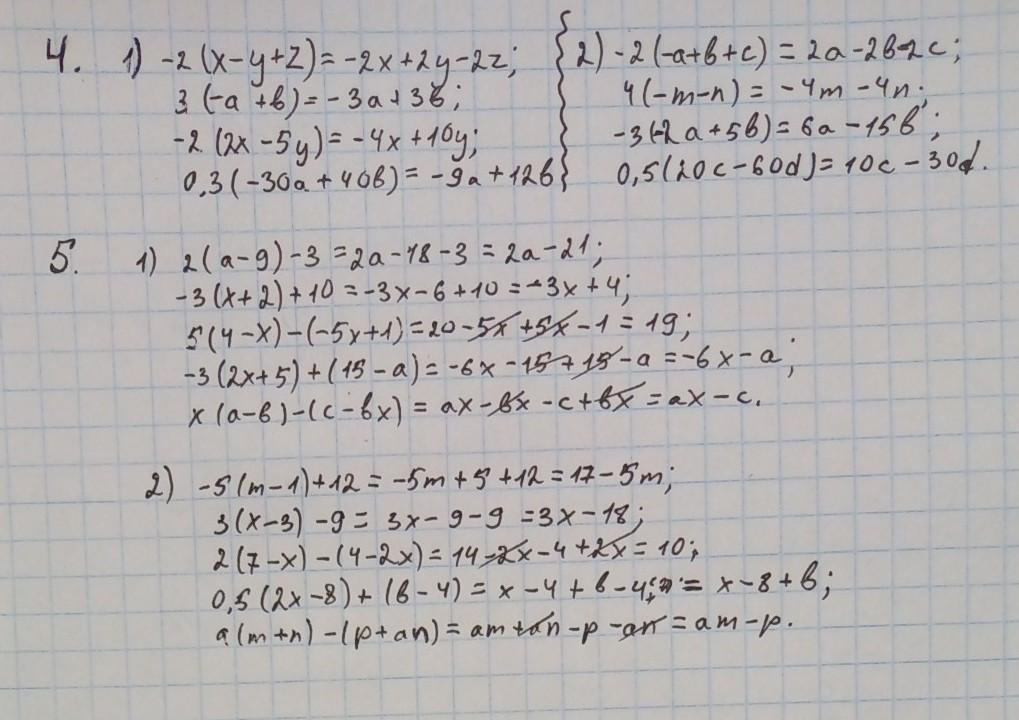 4. 1) -2(x-y+z)=-2x+2y-2z;
3(-a+b)=-3a+3b;
-2(2x-5y)=-4x+10y;
0,3(-30a+40b)=-9a+12b
2) -2(-a+b+c)=2a-2b-2c;
4(-m-n)=-4m-4n;
-3(-2a+5b)=6a-15b;
0,5(20c-60d)=10c-30d.
5. 1) 2(a-9)-3=2a-18-3=2a-21;
-3(x+2)+10=-3x-6+10=-3x+4;
5(4-x)-(-5x+1)=20-5x+5x-1=19;
-3(2x+5)+(15-a)=-6x-15+15-a=-6x-a;
x(a-b)-(c-bx)=ax-bx-c+bx=ax-c.
2) -5(m-1)+12=-5m+5+12=17-5m;
3(x-3)-9=3x-9-9=3x-18;
2(7-x)-(4-2x)=14-2x-4+2x=10;
0,5(2x-8)+(b-4)=x-4+b-4=x-8+b;
a(m+n)-(p+an)=am+an-p-an=am-p.